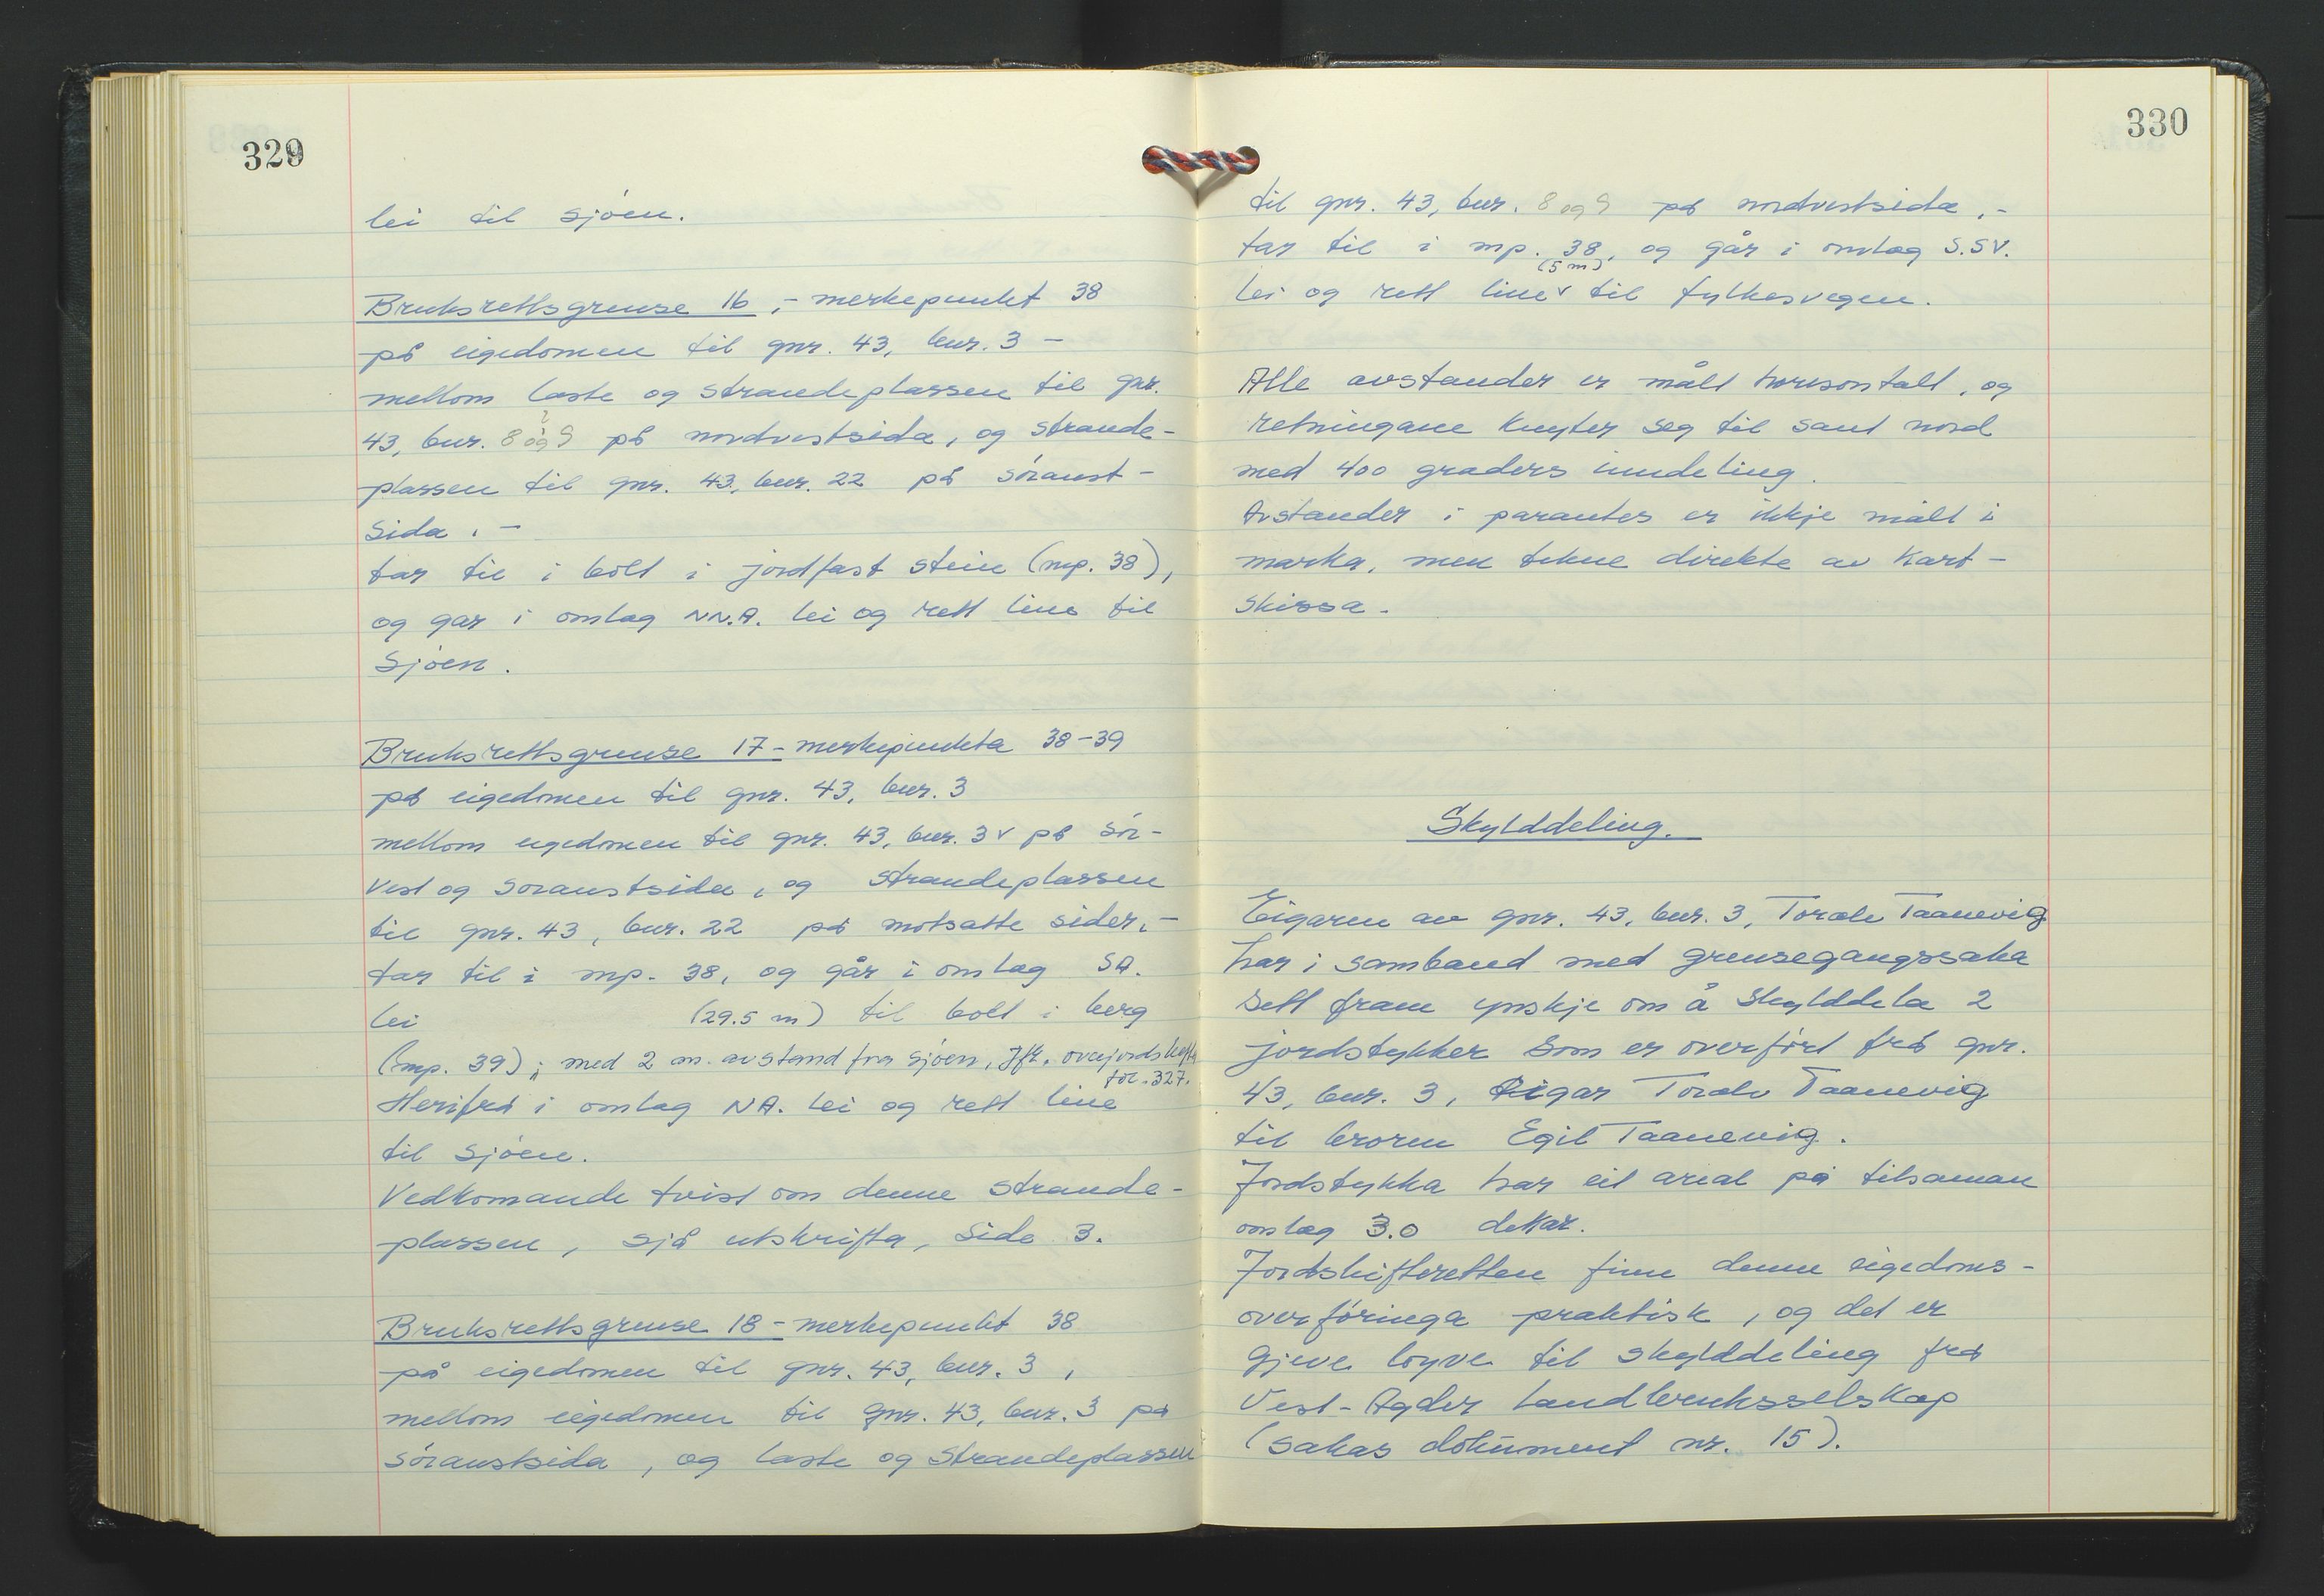 329
lei til sjøen.
Bruksrettsgrense 16,- merkepunkt 38
på eigedomen til gnr. 43, bnr. 3 -
mellom laste og strandeplassen til gnr.
43, bnr. 8 og 9 på nordvestsida, og strande-
plassen til gnr. 43, bnr. 22 på søraust-
sida, -
tar til i bolt i jordfast stein (mp. 38),
og gar i omlag NN.A. lei og rett line til
Sjøen.
Bruksrettsgrense 17 - merkepunkta 38-39
på eigedomen til gnr. 43, bnr. 3
mellom eigedomen til gnr. 43, bnr. 3 v på sør-
vest og søraustsida, og strandeplassen
til gnr. 43, bnr. 22 på motsatte sider, -
tar til i mp. 38, og går i omlag SA.
lei (29.5 m) til bolt i berg
(mp. 39); med 2 m. avstand fra sjøen, Jfr.
fol. 327.
Herifrå i omlag NA. lei og rett line
til sjøen.
Vedkomande tvist om denne strande-
plassen, sjå utskrifta, side 3.
Bruksrettsgrense 18 - merkepunkt 38
på eigedomen til gnr. 43, bnr. 3,
mellom eigedomen til gnr. 43, bnr. 3 på
søraustsida, og laste og strandeplassen
330
til gnr. 43, bnr. 8 og 9 på nordvestsida, -
tar til i mp. 38, og går i omlag S.SV.
(5 m)
lei og rett line v til fylkesvegen.
Alle avstander er målt horisontalt, og
retningane knyter seg til sant nord
med 400 graders inndeling.
Avstander i parantes er ikkje målt i
marka, men tekne direkte av kart-
skissa.
Skylddeling.
Eigaren av gnr. 43, bnr. 3, Toralv Taanevig
har i samband med grensegangssaka
sett fram ynskje om å skylddela 2
jordstykker som er overført frå gnr.
43, bnr. 3, Eigar Toralv Taanevig
til broren Egil Taanevig.
Jordstykka har eit areal på tilsaman
omlag 3.0 dekar.
Jordskifteretten finn denne eigedoms-
overføringa praktisk, og det er
gjeve løyve til skylddeling frå
Vest-Agder landbruksselskap
(sakas dokument nr. 15).